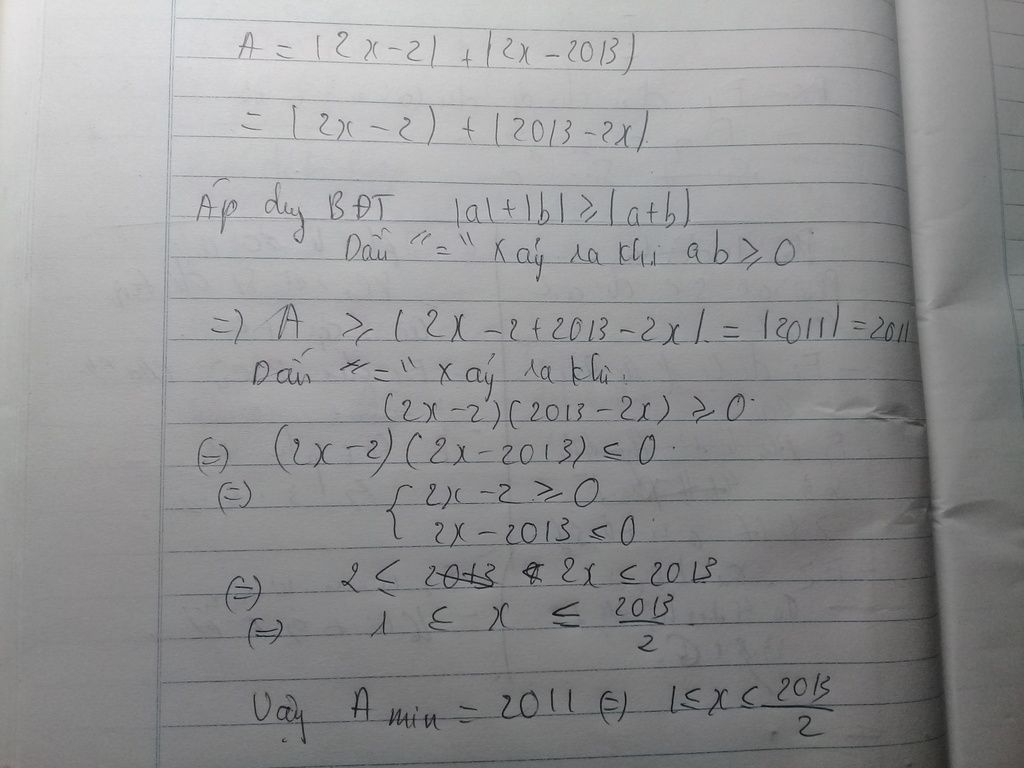 A = |2x-2| + |2x-2013|
= |2x-2| + |2013-2x|
Áp dụng BĐT |a|+|b| ≥ |a+b|
Dấu "=" xảy ra khi ab ≥ 0
=> A ≥ |2x-2+2013-2x| = |2011| = 2011
Dấu "=" xảy ra khi
(2x-2)(2013-2x) ≥ 0
(=) (2x-2)(2x-2013) ≤ 0
(=) { 2x-2 ≥ 0
2x-2013 ≤ 0
(=) 2 ≤ 2x ≤ 2013
(=) 1 ≤ x ≤ 2013/2
Vậy A min = 2011 (=) 1 ≤ x ≤ 2013/2